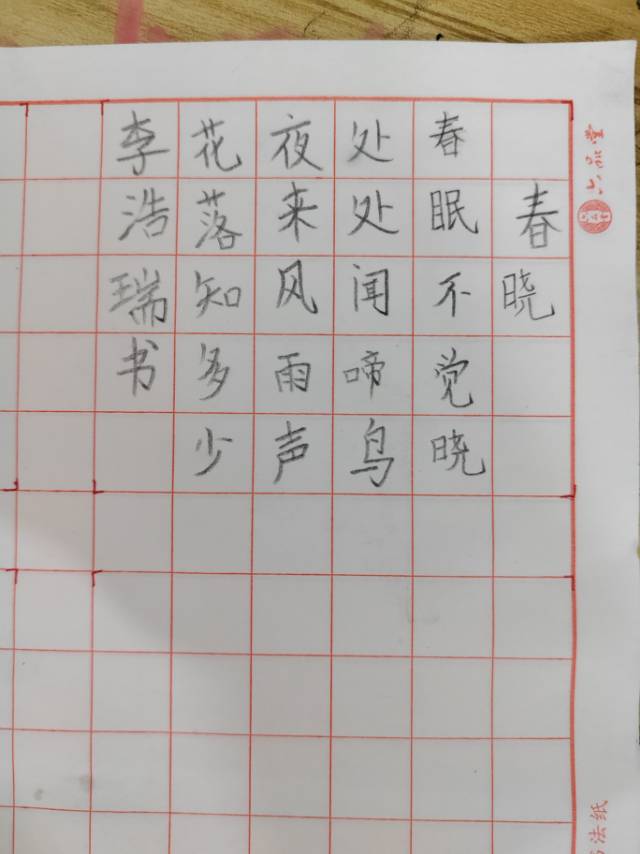 春晓
春眠不觉晓
处处闻啼鸟
夜来风雨声
花落知多少
李浩瑞书
六品堂
法纸